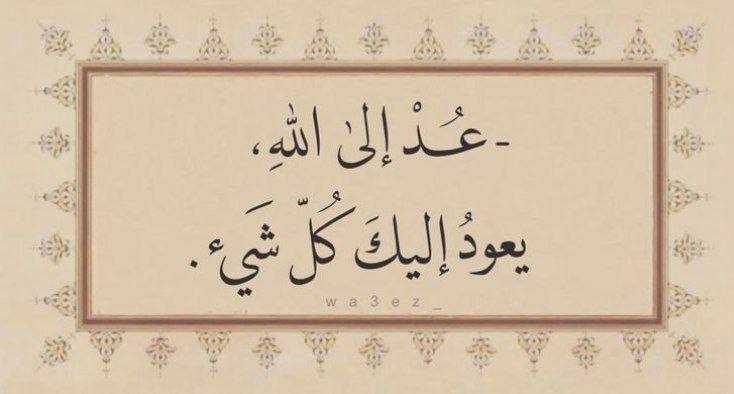 - عُـدْ إلىٰ اللهِ،
يعودُ إليكَ كُلّ شَيء.
wa3ez_